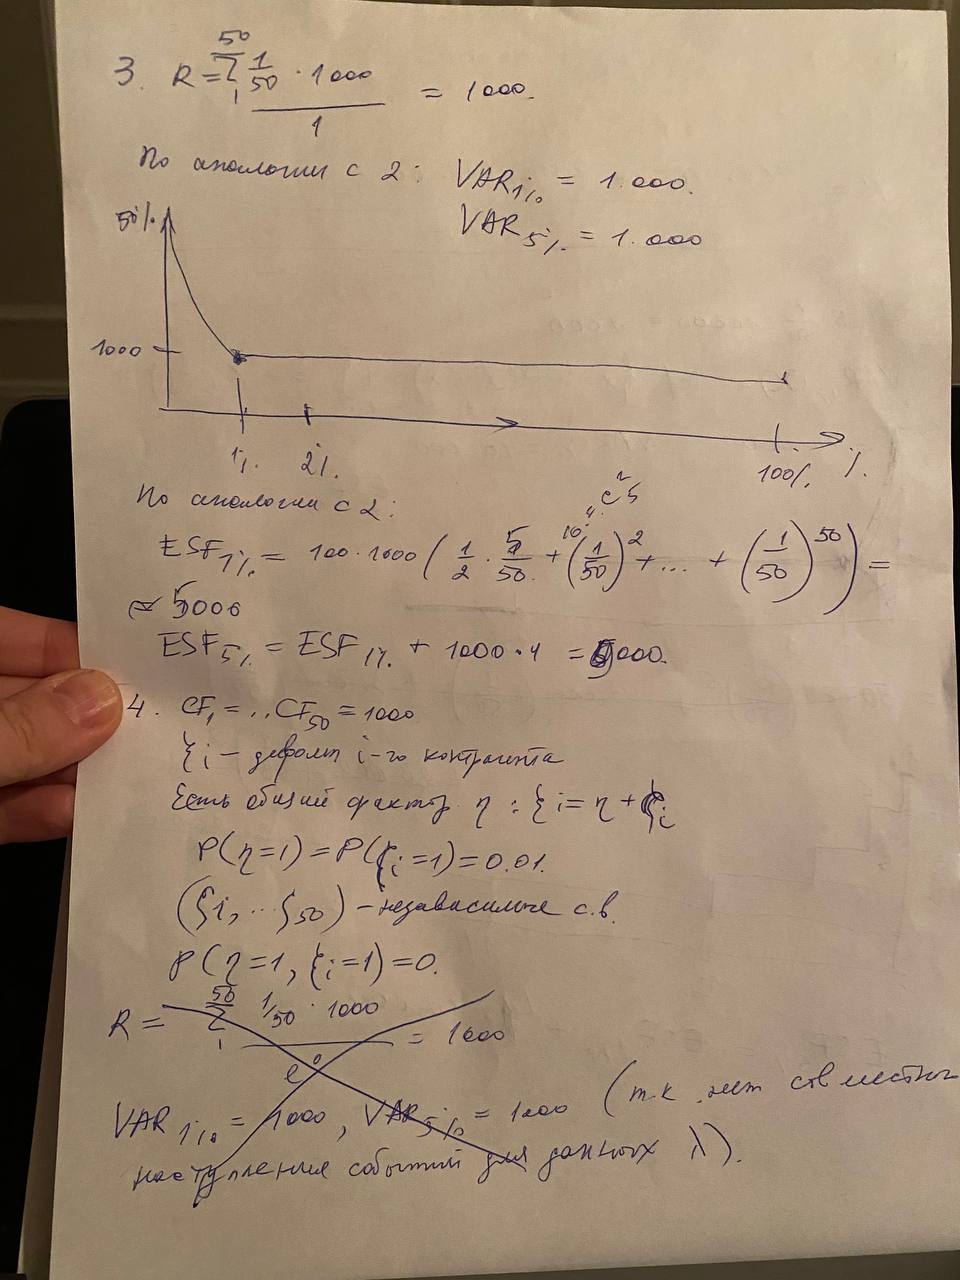 50
3. R = Σ 1/50 · 1000
1
1
= 1000.
По аналогии с 2: VAR1% = 1.000.
VAR5% = 1.000
50%
1000
1%. 2%. 100%. %.
По аналогии с 2:
ESF1% = 100·1000 ( 1/2 · 5/50 + (1/50)^2 + ... + (1/50)^50 ) =
≈ 5000
ESF5% = ESF1% + 1000·4 = 9000.
4. CF1 = .. CF50 = 1000
ξi – дефолт i-го контрагента
Есть общий фактор η : ξi = η + ζi
P(η=1) = P(ζi=1) = 0.01.
(ζi, ... ζ50) – независимые с.в.
P(η=1, ζi=1) = 0.
50
R = Σ 1/50 · 1000
1
e^0
= 1000
VAR1% = 1000, VAR5% = 1000 (т.к. нет совместно
наступления событий для данных λ).